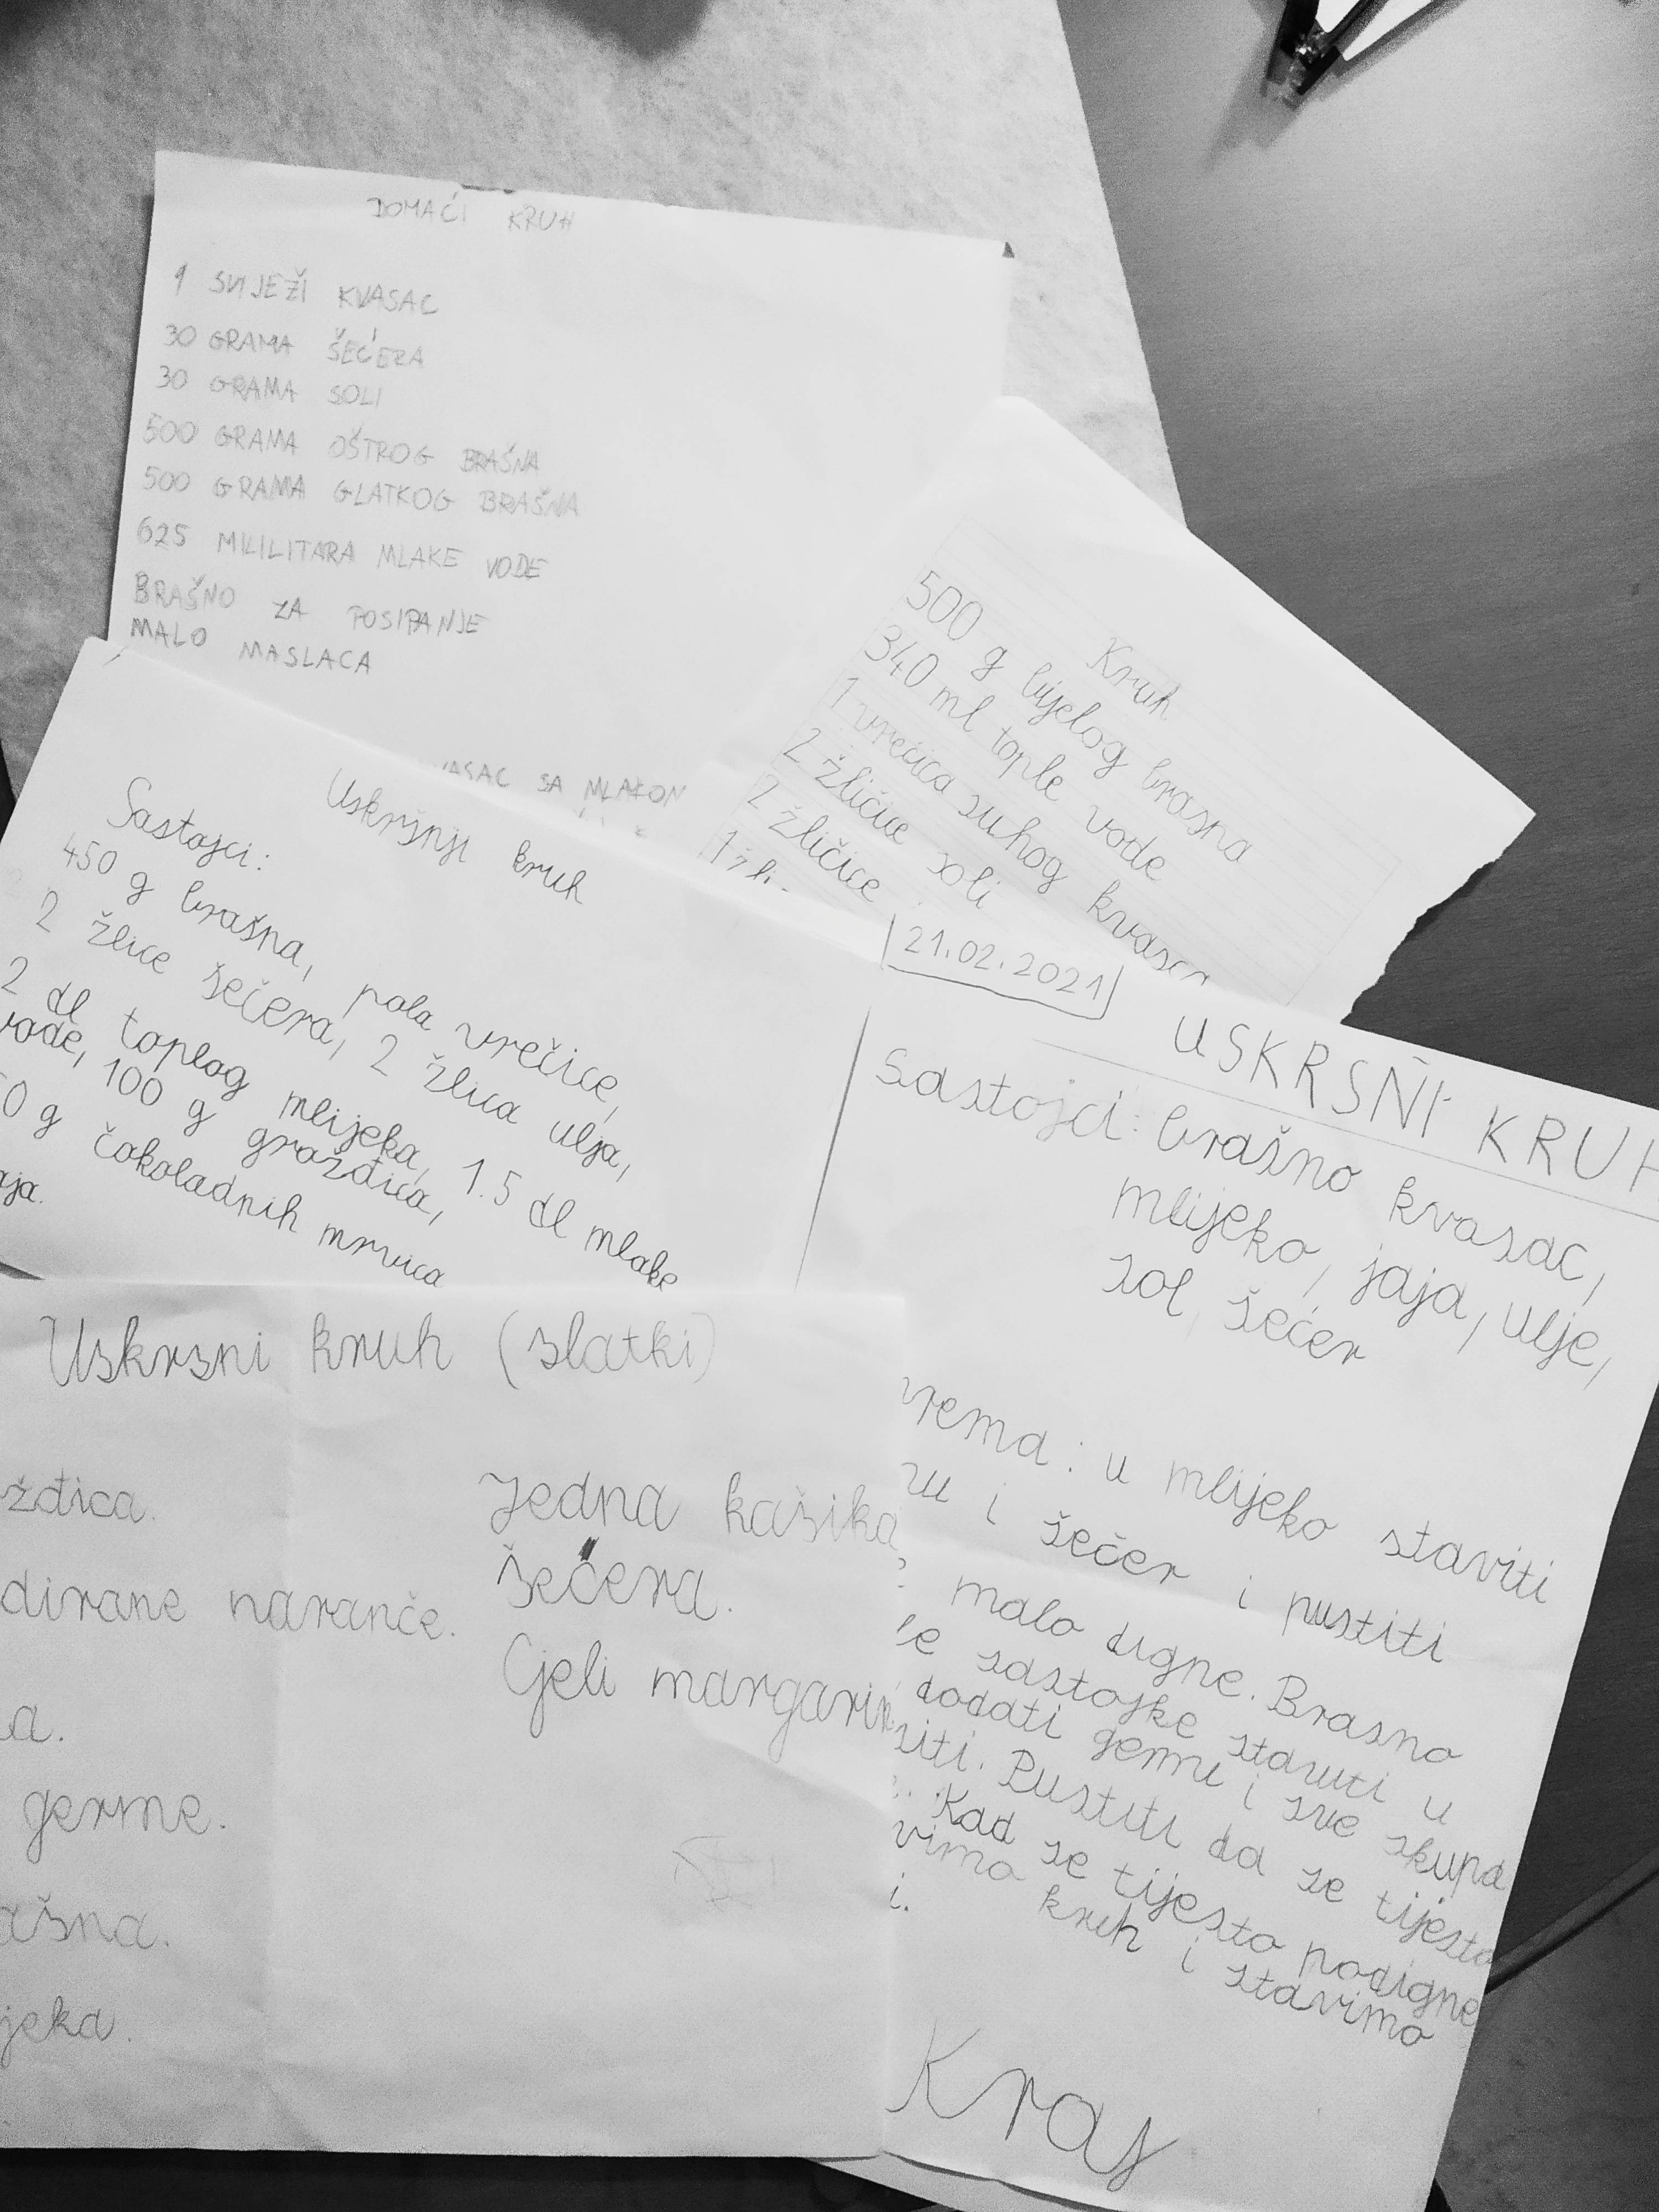 DOMAĆI KRUH
1 SVIJEŽI KVASAC
30 GRAMA ŠEĆERA
30 GRAMA SOLI
500 GRAMA OŠTROG BRAŠNA
500 GRAMA GLATKOG BRAŠNA
625 MILILITARA MLAKE VODE
BRAŠNO ZA POSIPANJE
MALO MASLACA
VASAC SA MLAKOM
Kruh
500 g bijelog brasna
340 ml tople vode
1 vrećica suhog kvasca
2 žličice soli
2 žličice
Uskršnji kruh
Sastojci:
450 g brašna, pola vrečice,
2 žlice šečera, 2 žlica ulja,
2 dl toplog mlijeka, 1.5 dl mlake
vode, 100 g grožđica,
0 g čokoladnih mrvica
aja.
21.02.2021
USKRSNI KRUH
Sastojci: brašno kvasac,
mlijeko, jaja, ulje,
sol, šećer
rema: u mlijeko staviti
i šečer i pustiti
malo digne. Brasno
le sastojke staviti u
dodati germu i sve skupa
siti. Pustiti da se tijesto
Kad se tijesto podigne
vimo kruh i stavimo
i.
Kraj
Uskrsni kruh (slatki)
žđica.
dirane naranče.
a.
germe.
ašna.
jeka.
Jedna kašika
šećera.
Cjeli margarin